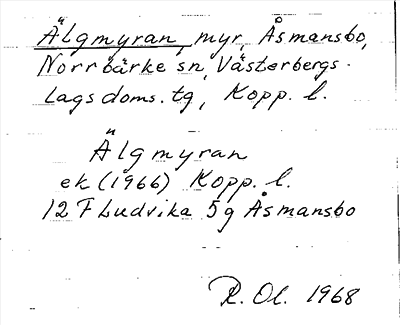 Älgmyran, myr, Åsmansbo,
Norrbärke sn, Västerbergs-
lags doms. tg, Kopp. l.
Älgmyran
ek (1966) Kopp. l.
12 F Ludvika 5g Åsmansbo
R. Ol. 1968